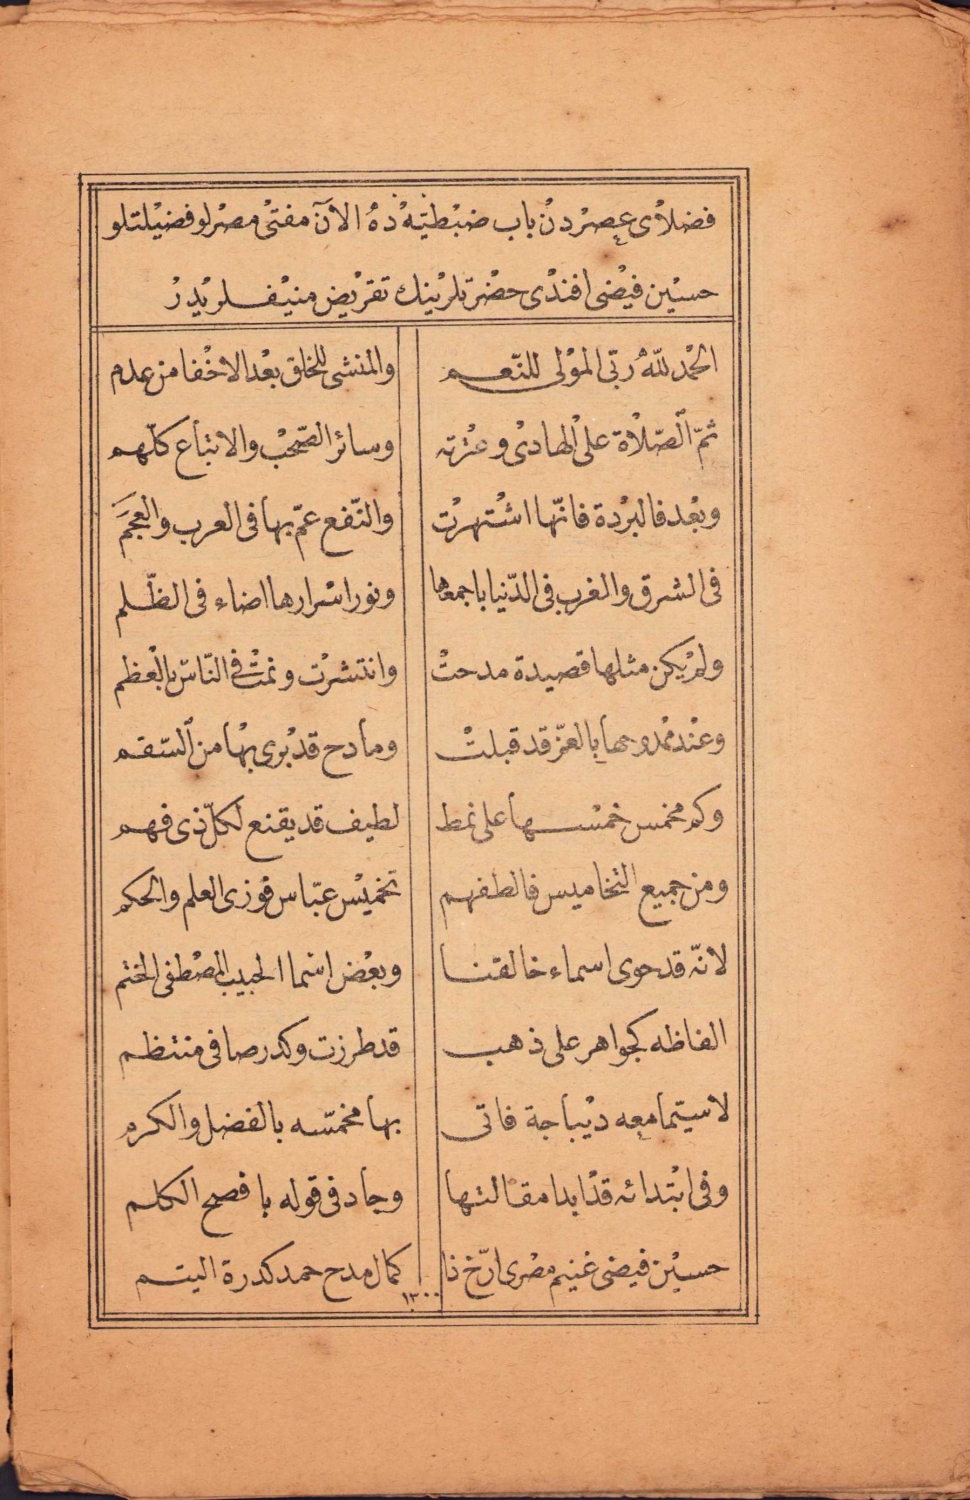 فضلاى عصردن باب ضبطيه ده الآن مفتى مصرلو فضيلتلو
حسين فيضى افندى حضرتلرينك تقريض منيفلريدر
الحمد للّه ربّى المولى للنّعم والمنشى للخلق بعد الاخفا من عدم
ثمّ الصّلاة على الهادى وعترته وسائر الصّحب والاتباع كلّهم
وبعد فالبردة فانّها اشتهرت والنّفع عمّ بها فى العرب والعجم
فى الشرق والغرب فى الدّنيا باجمعها ونور اسرارها اضاء فى الظّلم
ولم يكن مثلها قصيدة مدحت وانتشرت ونمت فى النّاس بالعظم
وعند ممدوحها بالعزّ قد قبلت ومادح قد برى بها من السّقم
وكم مخمس خمسها على نمط لطيف قد يقنع لكلّ ذى فهم
ومن جميع التخاميس فالطفهم تخميس عبّاس فوزى العلم والحكم
لانّه قد حوى اسماء خالقنا وبعض اسما الحبيب المصطفى الختم
الفاظه كجواهر على ذهب قد طرزت وكدر صافى منتظم
لاسيّما معه ديباجة فاتى بها مخمّسه بالفضل والكرم
وفى ابتدائه قد ابدا مقالتها وجاد فى قوله بافصح الكلم
حسين فيضى غنيم مصرى ارّخ ذا كمال مدح حمد كدرة اليتم
١٣٠٠